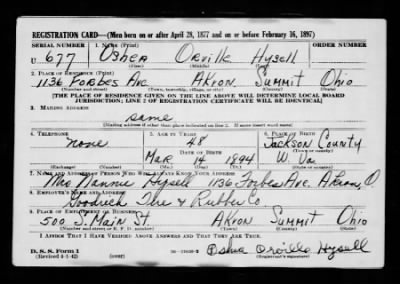 REGISTRATION CARD—(Men born on or after April 28, 1877 and on or before February 16, 1897)
SERIAL NUMBER 1. NAME (Print) ORDER NUMBER
U 677 Oshea Orville Hysell
(First) (Middle) (Last)
2. PLACE OF RESIDENCE (Print)
1136 Forbes Ave Akron Summit Ohio
(Number and street) (Town, township, village, or city) (County) (State)
[THE PLACE OF RESIDENCE GIVEN ON THE LINE ABOVE WILL DETERMINE LOCAL BOARD
JURISDICTION; LINE 2 OF REGISTRATION CERTIFICATE WILL BE IDENTICAL]
3. MAILING ADDRESS
same
(Mailing address if other than place indicated on line 2. If same insert word same)
4. TELEPHONE 5. AGE IN YEARS 6. PLACE OF BIRTH
none 48 Jackson County
DATE OF BIRTH (Town or county)
Mar 14 1894 W. Va
(Exchange) (Number) (Mo.) (Day) (Yr.) (State or country)
7. NAME AND ADDRESS OF PERSON WHO WILL ALWAYS KNOW YOUR ADDRESS
Mrs Nannie Hysell 1136 Forbes Ave. Akron, O.
8. EMPLOYER'S NAME AND ADDRESS
Goodrich Tire & Rubber Co.
9. PLACE OF EMPLOYMENT OR BUSINESS
500 S. Main St. Akron Summit Ohio
(Number and street or R. F. D. number) (Town) (County) (State)
I AFFIRM THAT I HAVE VERIFIED ABOVE ANSWERS AND THAT THEY ARE TRUE.
D. S. S. Form 1
(Revised 4-1-42) (over) Oshea Orville Hysell
(Registrant's signature)